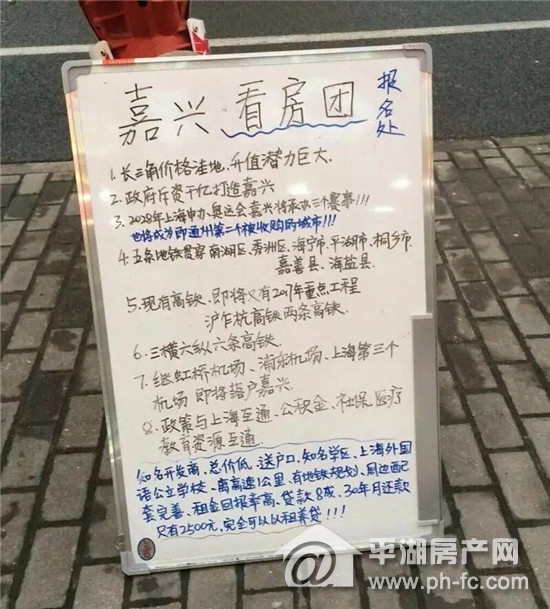 嘉兴看房团
报名处
1. 长三角价格洼地、升值潜力巨大.
2. 政府斥资千亿打造嘉兴
3. 2028年上海申办奥运会嘉兴将承办三个赛事!!!
也将成为即通州第二个被收购的城市!!!
4. 五条地铁贯穿南湖区、秀洲区、海宁市、平湖市、桐乡市
嘉善县、海盐县.
5. 现有高铁、即将又有2017年重点工程
沪乍杭高铁两条高铁.
6. 三横六纵六条高铁.
7. 继虹桥机场、浦东机场、上海第三个
机场即将落户嘉兴.
8. 政策与上海互通、公积金、社保、医疗
教育资源互通.
知名开发商、总价低、送户口、知名学区、上海外国
语公立学校、离高速1公里、有地铁规划、周边配
套完善、租金回报率高、贷款8成、30年月还款
只有2500元,完全可以以租养贷!!!
平湖房产网
www.ph-fc.com